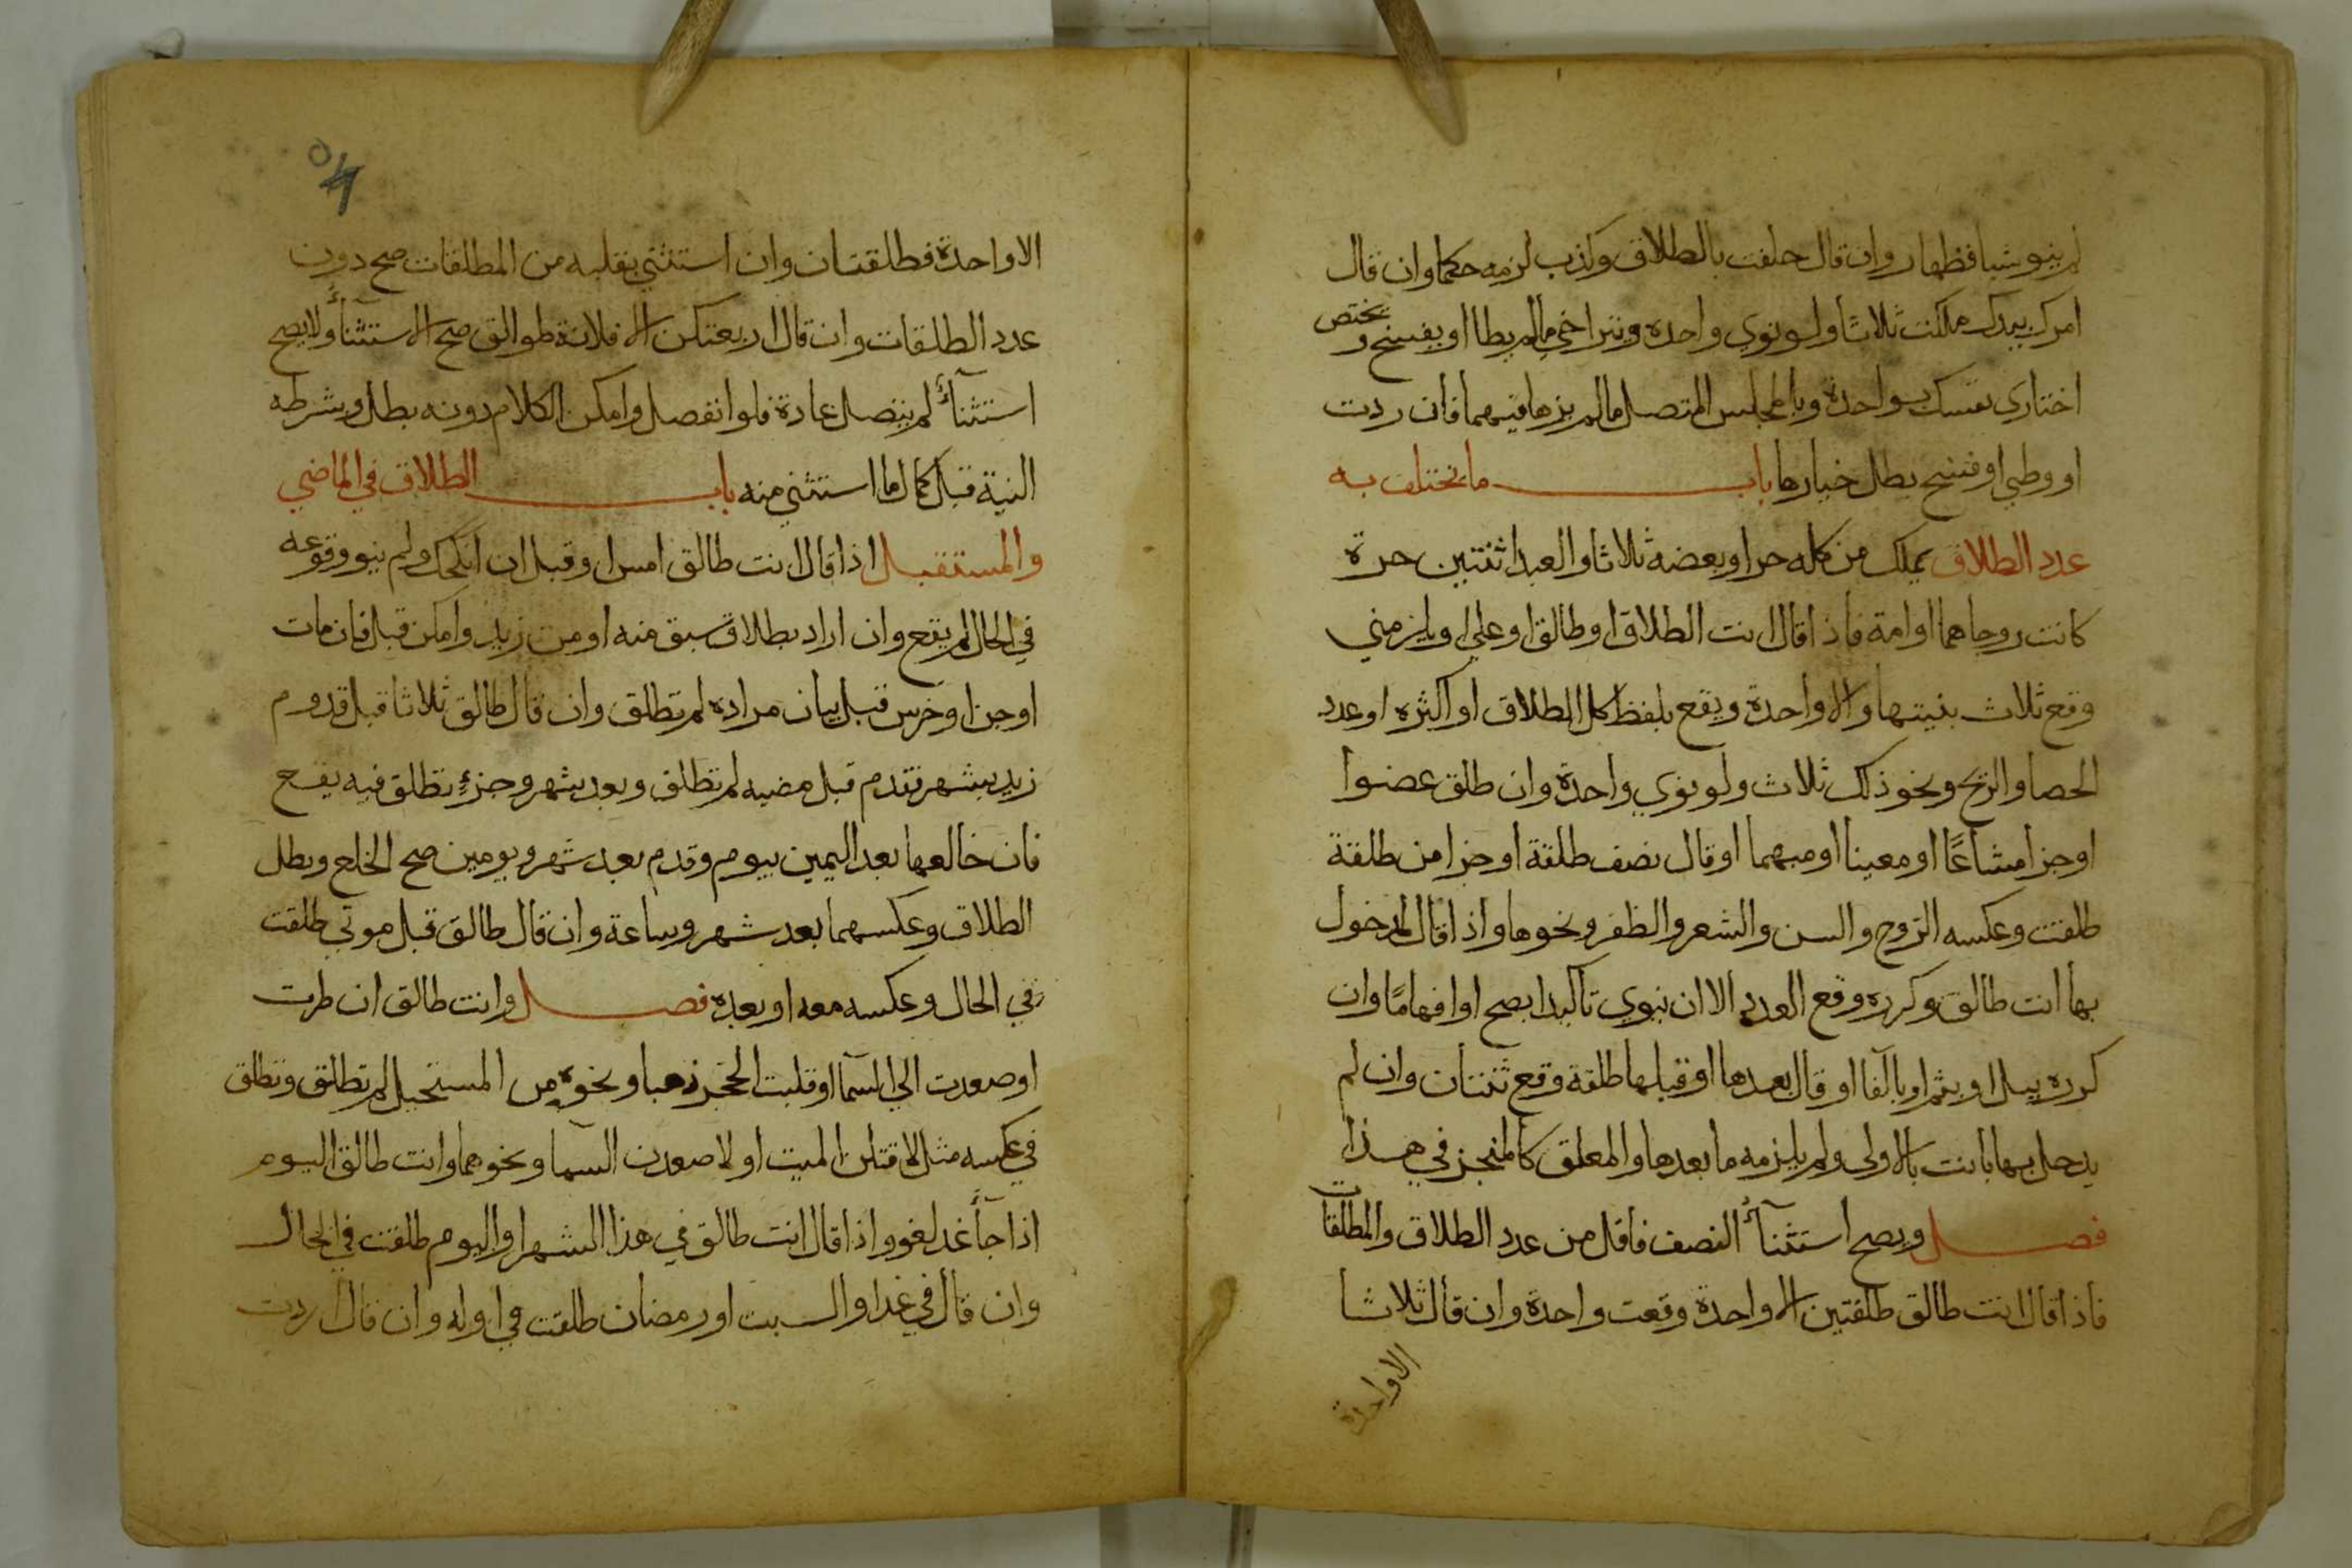 لم ينو شيا فظهار وان قال حلفت بالطلاق وكذب لزمه حكما وان قال
امرك بيدك ملكت ثلاثا ولو نوي واحده ويتراخي مالم يطا او يفسخ ويختص
اختاري نفسك بواحدة وبالمجلس المتصل مالم يزدها فيهما فان ردت
او وطي او فسخ بطل خيارها باب ما يختلف به
عدد الطلاق يملك من كله حر او بعضه ثلاثا والعبد اثنتين حرة
كانت زوجاهما او امة فاذا قال انت الطلاق او طالق او علي او يلزمني
وقع ثلاث بنيتها والا واحدة ويقع بلفظ كل الطلاق او اكثره او عدد
الحصا والريح ونحو ذلك ثلاث ولو نوي واحدة وان طلق عضوا
او جزا مشاعًا او معينا او مبهما او قال نصف طلقة او جزا من طلقة
طلقت وعكسه الروح والسن والشعر والظفر ونحوها واذا قال لمدخول
بها انت طالق وكرره وقع العدد الا ان ينوي تاكيدا يصح او افهامًا وان
كرره ببل او بثم او بالفا او قال بعدها او قبلها طلقة وقع ثنتان وان لم
يدخل بها بانت بالاولى ولم يلزمه ما بعدها والمعلق كالمنجز في هذا
فصل ويصح استثنآء النصف فاقل من عدد الطلاق والمطلقات
فاذا قال انت طالق طلقتين الا واحدة وقعت واحدة وان قال ثلاثا
الا واحدة
٥٤
الا واحدة فطلقتان وان استثني بقلبه من المطلقات صح دون
عدد الطلقات وان قال اربعتكن الا فلانة طوالق صح الاستثنآء ولا يصح
استثنآء لم يتصل عادة فلو انفصل وامكن الكلام دونه بطل وشرطه
النية قبل كمال ما استثني منه باب الطلاق في الماضي
والمستقبل اذا قال انت طالق امس او قبل ان انكحك ولم ينو وقوعه
في الحال لم يقع وان اراد بطلاق سبق منه او من زيد وامكن قبل فان مات
او جن او خرس قبل بيان مراده لم تطلق وان قال طالق ثلاثا قبل قدوم
زيد بشهر فقدم قبل مضيه لم تطلق وبعد شهر وجزءٍ تطلق فيه يقع
فان خالعها بعد اليمين بيوم وقدم بعد شهر ويومين صح الخلع وبطل
الطلاق وعكسهما بعد شهر وساعة وان قال طالق قبل موتي طلقت
في الحال وعكسه معه او بعده فصل وانت طالق ان طرت
او صعدت الي السمآ او قلبت الحجر ذهبا ونحوه من المستحيل لم تطلق وتطلق
في عكسه مثل لاقتلن الميت او لا صعدن السمآ ونحوهما وانت طالق اليوم
اذا جآء غد لغو واذا قال انت طالق في هذا الشهر او اليوم طلقت في الحال
وان قال في غد او السبت او رمضان طلقت في اوله وان قال اردت